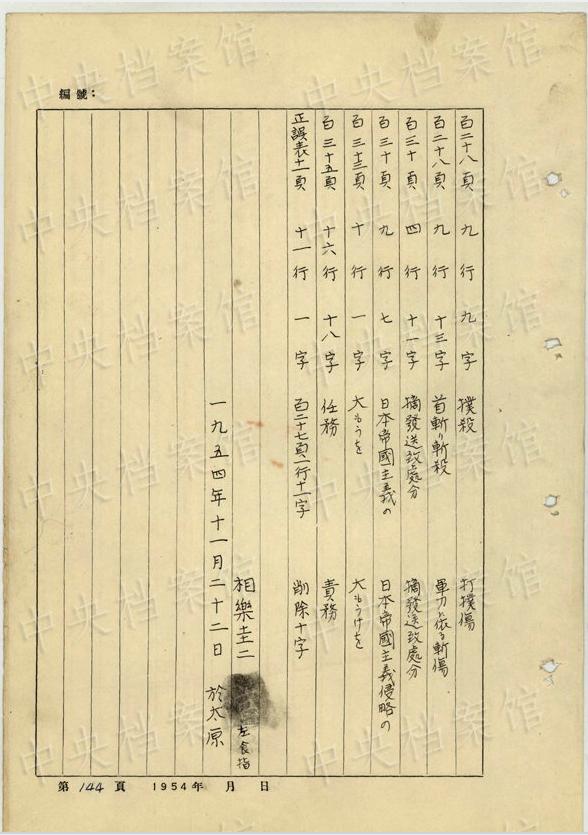 編號：
百二十八頁 九行 九字 撲殺 打撲傷
百二十八頁 九行 十三字 首斬り斬殺 軍刀に依る斬傷
百三十頁 四行 十一字 摘發送致處分 摘發送致處分
百三十頁 九行 七字 日本帝國主義の 日本帝國主義侵略の
百三十三頁 十行 一字 大もうを 大もうけを
百三十五頁 十六行 十八字 任務 責務
正誤表十一頁 十一行 一字 百二十七頁一行十一字 削除十字
相樂圭二
左食指
一九五四年十一月二十二日 於太原
第 144 頁 1954年 月 日
中央档案馆